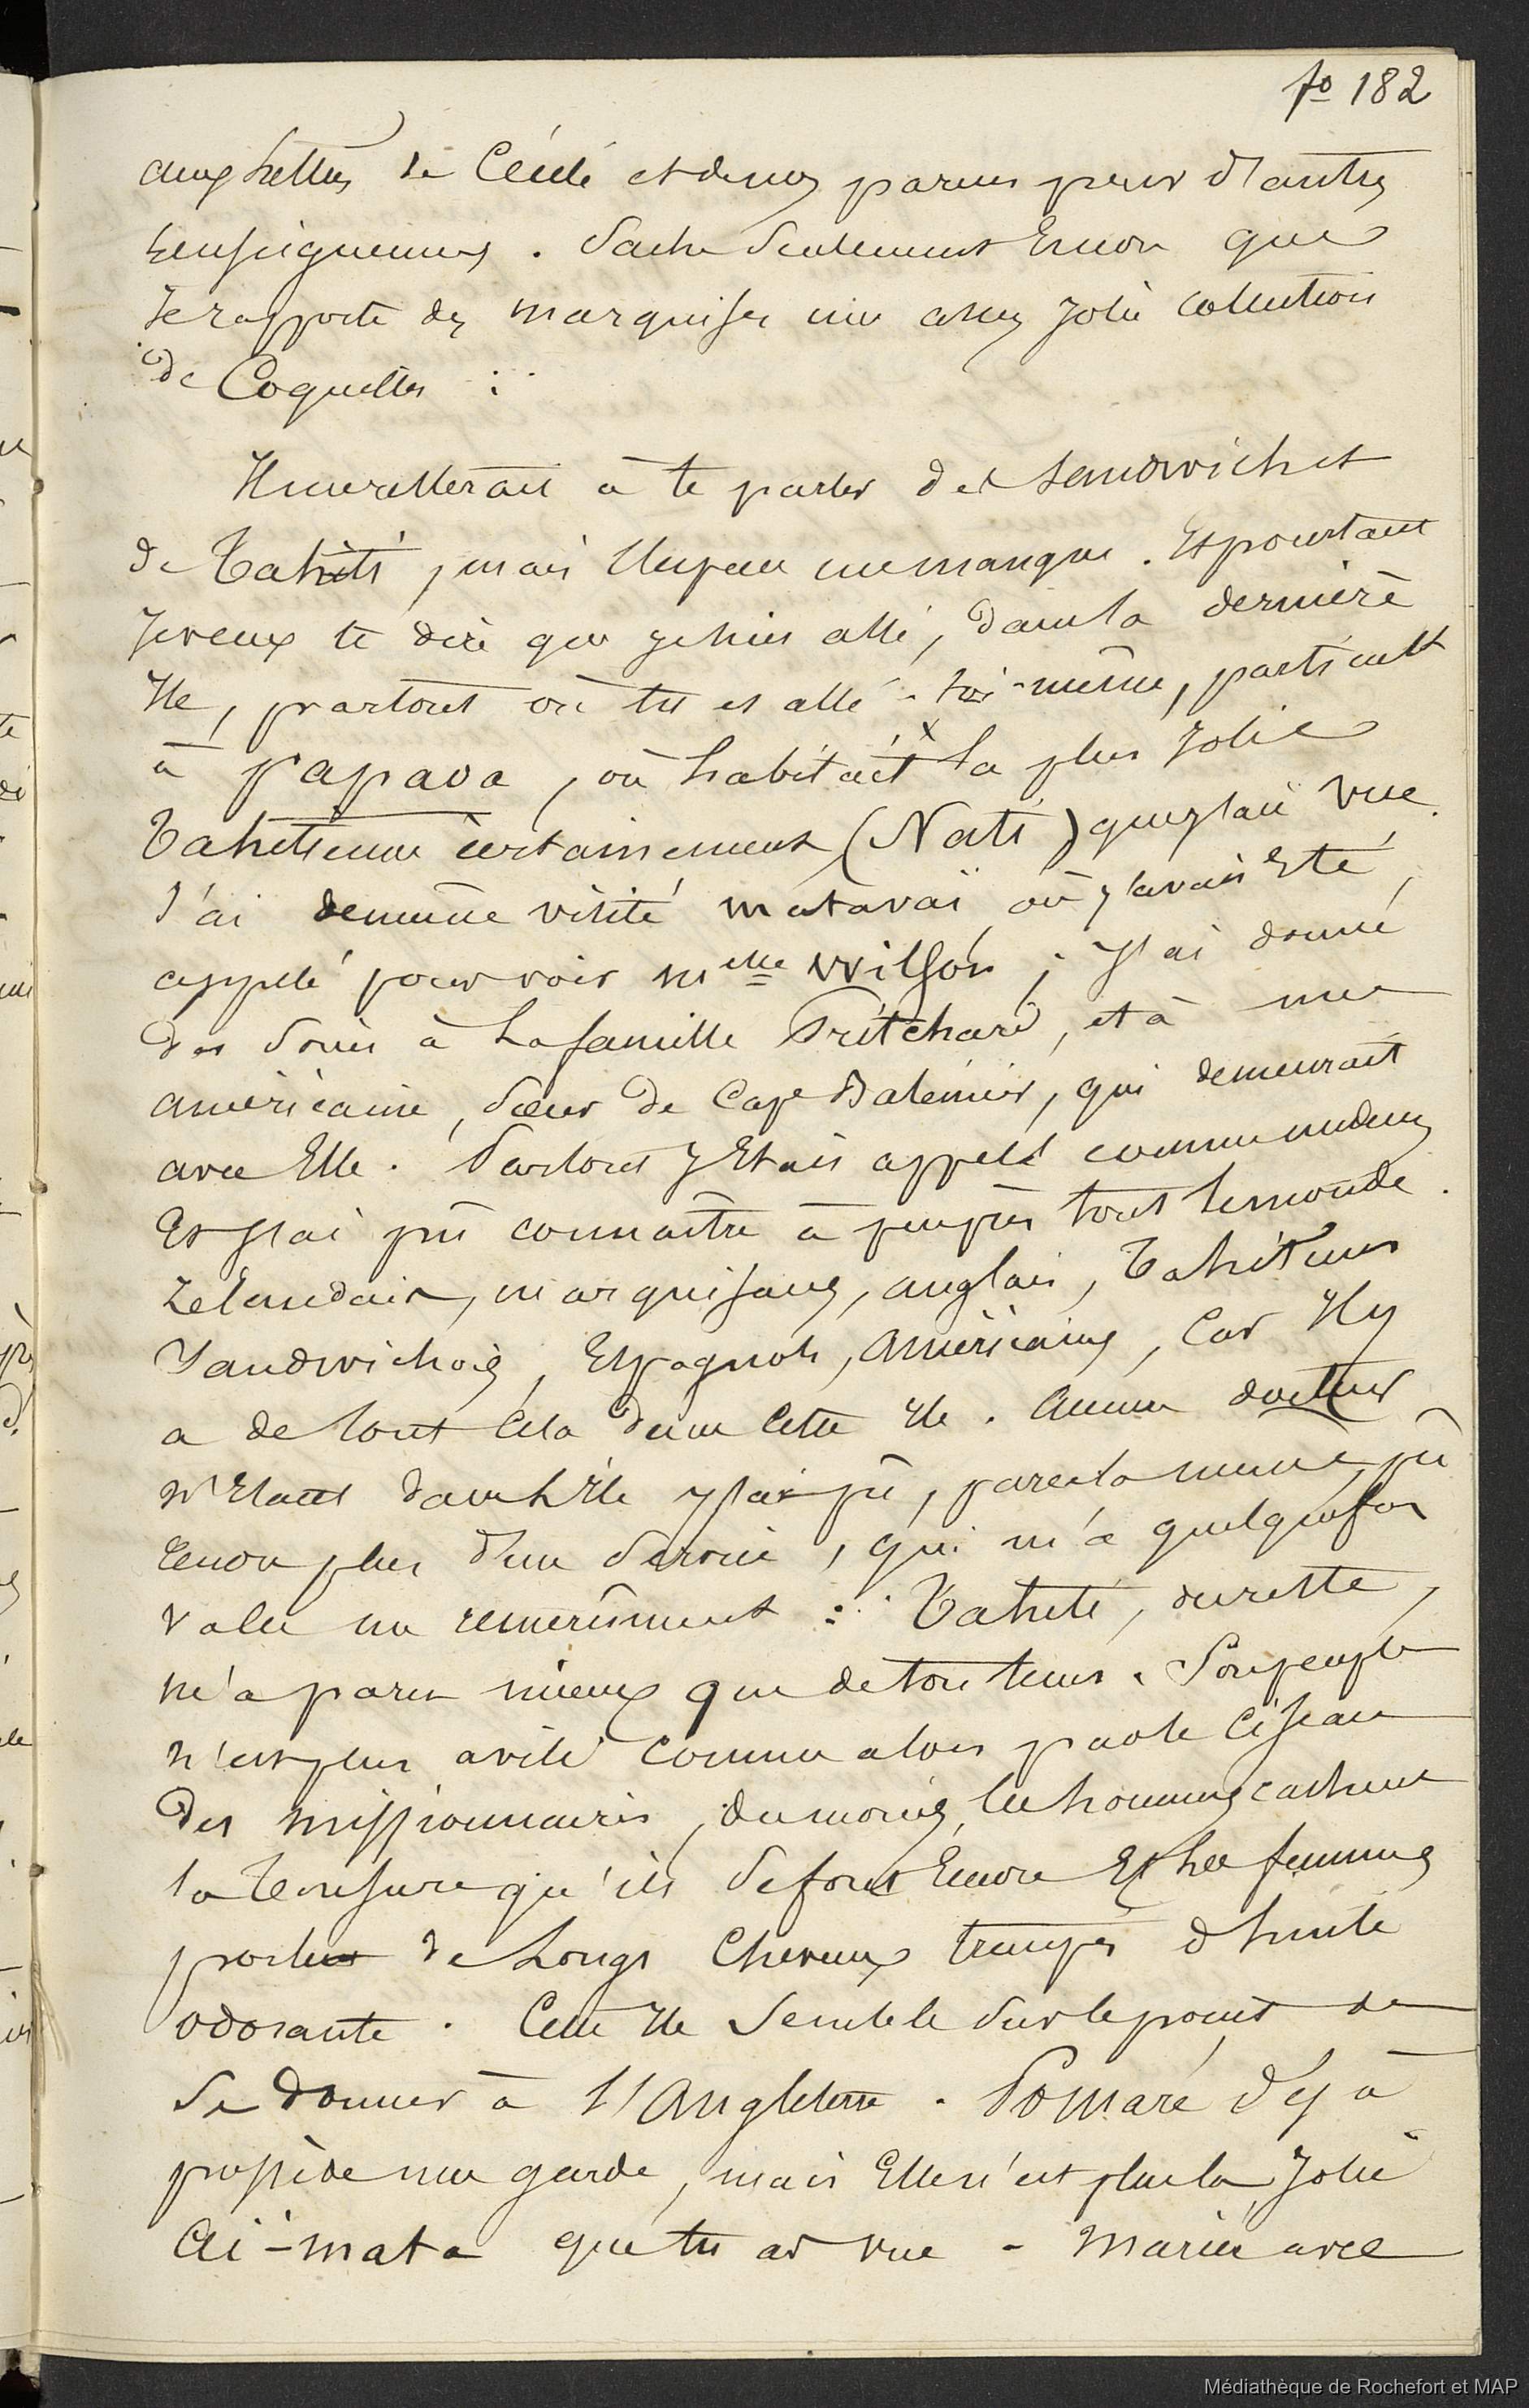 fo 182
aux lettres de Cécile et de mes parens pour d'autres
renseignemens. Sache seulement encore que
je rapporte des marquises une assez jolie collection
de Coquilles :.
Il me resterait à te parler des sandwich et
de Tahiti, mais l'espace me manque. Et pourtant
je veux te dire que je suis allé, dans la dernière
Ile, partout où tu es allé toi-même, particult
à papaoa, où habitait x la plus jolie
Tahitienne certainement (Nati) que j'aie vue.
J'ai de même visité matavaï où j'avais Eté
appelé pour voir Melle Wilson ; J'ai donné
des soins à la famille Pritchard, et à une
américaine, sœur de Cape Baleinier, qui demeurait
avec Elle. Partout j'Etais appelé comme médecin
Et j'ai pû connaître à peu près tout le monde.
Zelandais, marquisans, anglais, Tahitiens
Sandwichois, Espagnols, Américains, Car Il y
a de tout cela dans cette Ile. Aucun docteur
n'Etant dans l'Ile j'ai pû, par cela même, pû
rendre plus d'un service, qui m'a quelquefois
valu un remercîment :. Tahiti, du reste,
m'a paru mieux que de ton tems. Son peuple
n'est plus avili comme alors par le ciseau
des missionnaires, du moins, les hommes cachent
la tonsure qu'ils se font Encore Et les femmes
portent de longs cheveux trempés d'huile
odorante. Cette Ile semble sur le point de
se donner à l'Angleterre. Pomaré déjà
possède une garde, mais Elle n'est plus la jolie
Aï-mata que tu as vue - mariée avec
Médiathèque de Rochefort et MAP